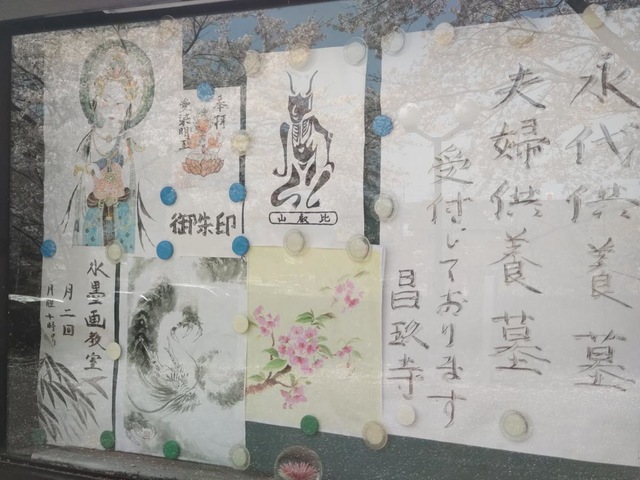 永代供養墓
夫婦供養墓
受付しております
昌玖寺
比叡山
奉拝
愛染明王
御朱印
水墨画教室
月二回
月曜十時より